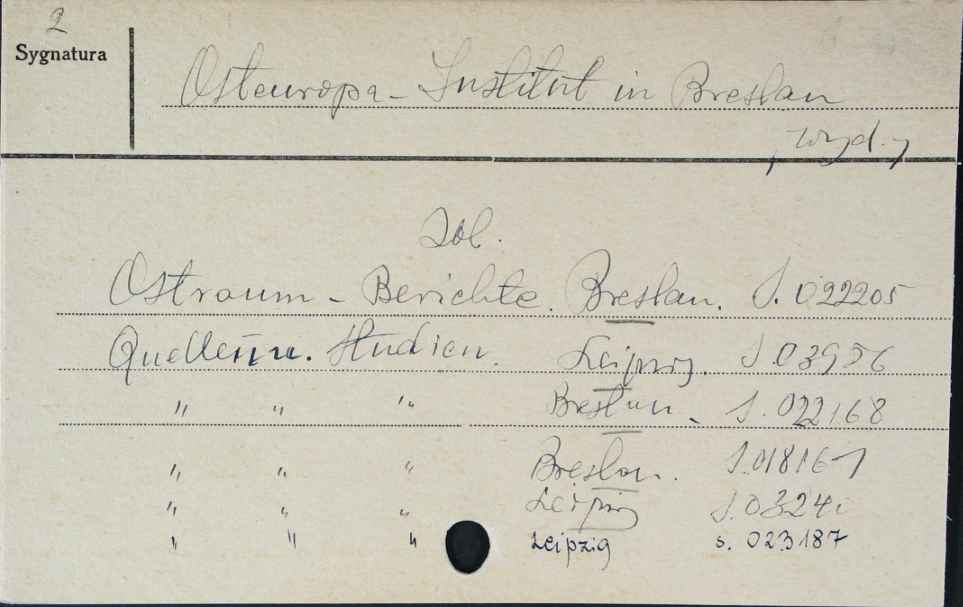 2
Sygnatura
Osteuropa-Institut in Breslau
, wyd.,
Zob.
Ostraum-Berichte. Breslau. S. 022205
Quellen u. Studien. Leipzig. S. 03956
" " " Breslau. S. 022168
" " " Breslau. S. 018161
" " " Leipzig S.
" " " Leipzig s. 023187